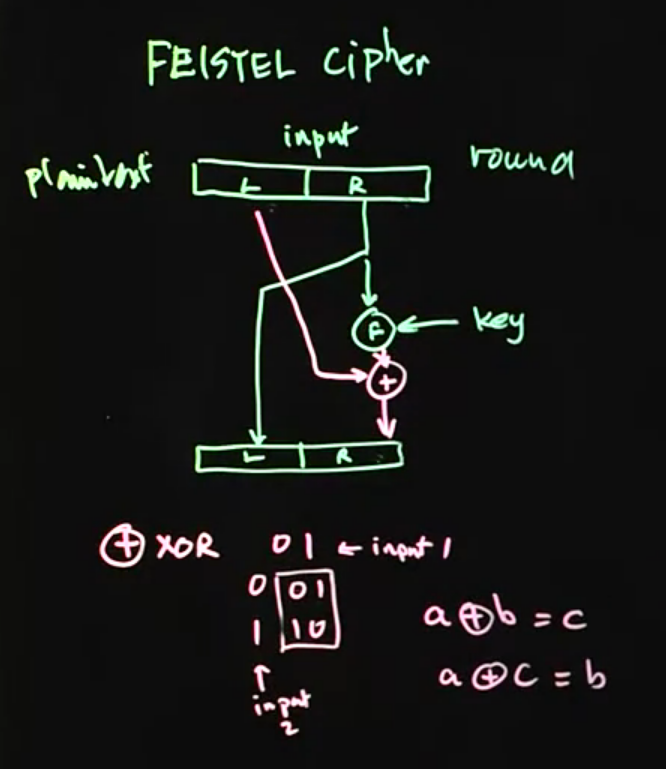 FEISTEL cipher
input
plaintext
round
L R
F
key
+
L R
⊕ XOR 0 1 ← input 1
0 0 1
1 1 0
↑
input
2
a ⊕ b = c
a ⊕ c = b